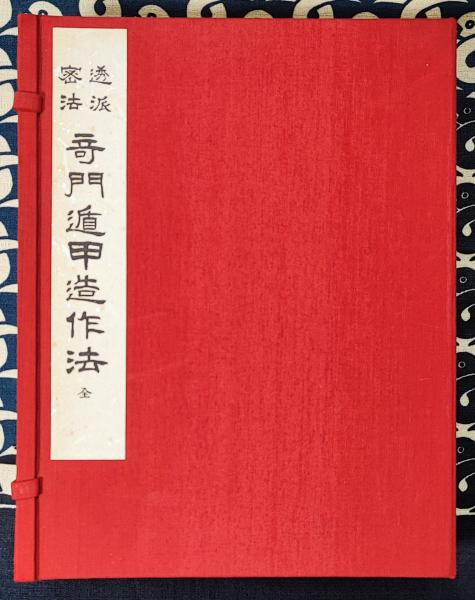 透派
密法
奇門遁甲造作法
全